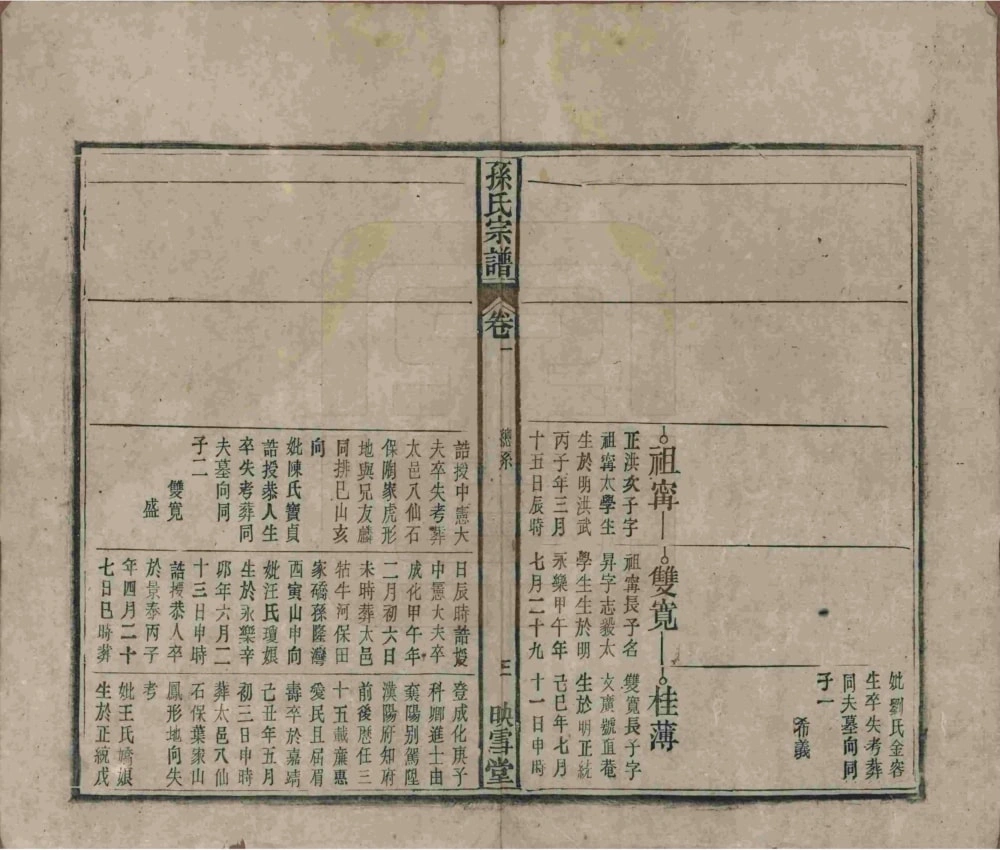 妣劉氏金容
生卒失考葬
同夫墓向同
子一
希義
祖甯
正洪次子字
祖甯太學生
生於明洪武
丙子年三月
十五日辰時
雙寬
祖甯長子名
昇字志毅太
學生生於明
永樂甲午年
七月二十九
桂薄
雙寬長子字
文廣號直菴
生於明正統
己巳年七月
十一日申時
孫氏宗譜
卷一
總系
三
映雪堂
誥授中憲大
夫卒失考葬
太邑八仙石
保闕家虎形
地與兄友麟
同排巳山亥
向
妣陳氏寶貞
誥授恭人生
卒失考葬同
夫墓向同
子二
雙寬
盛
日辰時誥授
中憲大夫卒
成化甲午年
二月初六日
未時葬太邑
牯牛河保田
家礄孫隆灣
酉寅山申向
妣汪氏瓊娘
生於永樂辛
卯年六月二
十三日申時
誥授恭人卒
於景泰丙子
年四月二十
七日巳時葬
登成化庚子
科鄉進士由
襄陽別駕陞
漢陽府知府
前後歷任三
十五載廉惠
愛民且居眉
壽卒於嘉靖
己丑年五月
初三日申時
葬太邑八仙
石保葉家山
鳳形地向失
考
妣王氏嬌娘
生於正統戊